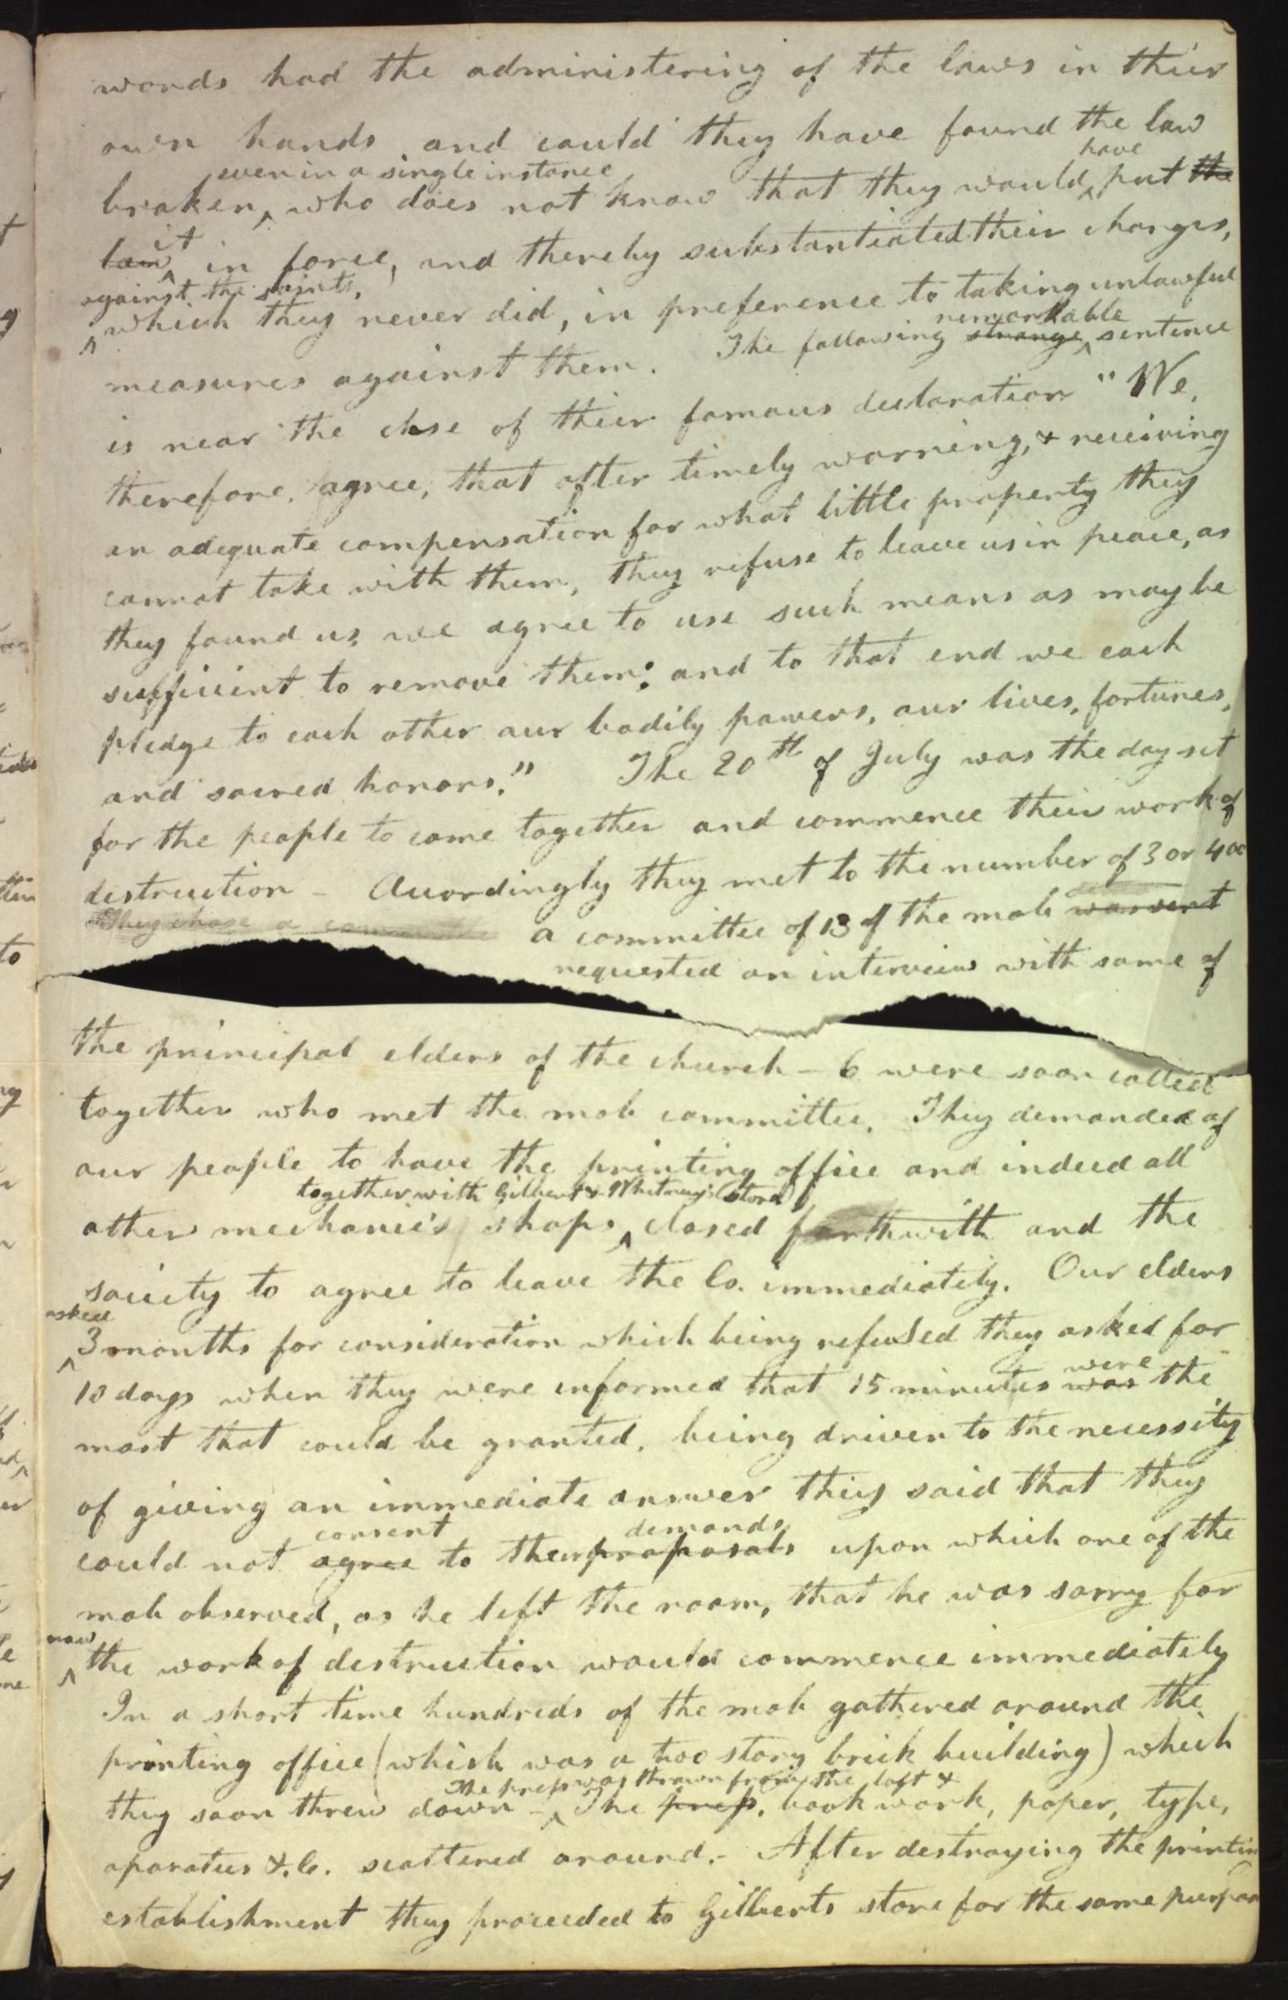 words had the administering of the laws in their
own hands and could they have found the law
even in a single instance have
broken, who does not know that they would put the
it
law in force, and thereby substantiated their charges,
against the saints,
which they never did, in preference to taking unlawful
remarkable
measures against them. The following strange sentence
is near the close of their famous declaration "We,
therefore, agree, that after timely warning, & receiving
an adequate compensation for what little property they
cannot take with them, they refuse to leave us in peace, as
they found us, we agree to use such means as may be
sufficient to remove them: and to that end we each
pledge to each other our bodily powers, our lives, fortunes,
and sacred honors." The 20th of July was the day set
for the people to come together and commence their work of
destruction - Accordingly they met to the number of 3 or 400
They chose a committee a committee of 13 of the mob was sent
requested an interview with some of
the principal elders of the church - 6 were soon collect
together who met the mob committee. They demanded of
our people to have the printing office and indeed all
together with Gilbert & Whitney's store
other mechanic's shops, closed forthwith and the
society to agree to leave the Co. immediately. Our elders
asked
3 months for consideration which being refused they asked for
were
10 days when they were informed that 15 minutes was the
most that could be granted. being driven to the necessity
of giving an immediate answer they said that they
consent demands
could not agree to their proposals upon which one of the
mob observed, as he left the room, that he was sorry for
now
the work of destruction would commence immediately
In a short time hundreds of the mob gathered around the
printing office (which was a two story brick building) which
The press was thrown from the loft &
they soon threw down - The press, book work, paper, type,
aparatus &.c. scattered around.- After destroying the printin
establishment they proceeded to Gilberts store for the same purpose